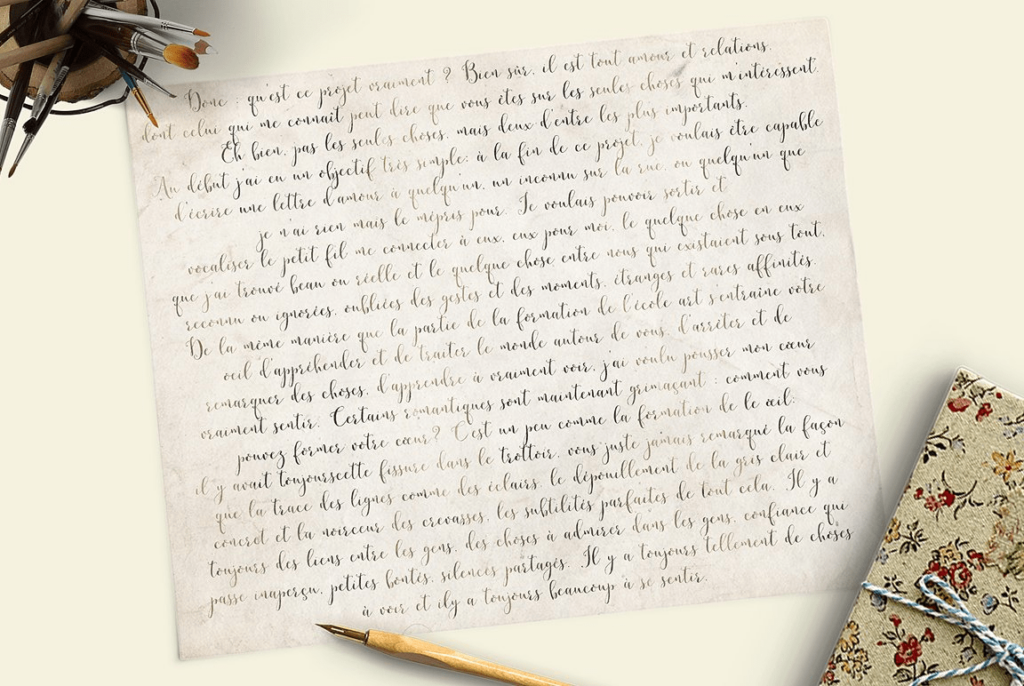 Donc : qu'est ce projet vraiment ? Bien sûr, il est tout amour et relations,
dont celui qui me connait peut dire que vous êtes sur les seules choses qui m'intéressent.
Eh bien, pas les seules choses, mais deux d'entre les plus importants.
Au début j'ai eu un objectif très simple: à la fin de ce projet, je voulais être capable
d'écrire une lettre d'amour à quelqu'un, un inconnu sur la rue, ou quelqu'un que
je n'ai rien mais le mépris pour. Je voulais pouvoir sortir et
vocaliser le petit fil me connecter à eux, eux pour moi, le quelque chose en eux
que j'ai trouvé beau ou réelle et le quelque chose entre nous qui existaient sous tout,
reconnu ou ignorées, oubliées des gestes et des moments, étranges et rares affinités.
De la même manière que la partie de la formation de l'école art s'entraîne votre
oeil d'appréhender et de traiter le monde autour de vous, d'arrêter et de
remarquer des choses, d'apprendre à vraiment voir, j'ai voulu pousser mon cœur
vraiment sentir. Certains romantiques sont maintenant grimaçant : comment vous
pouvez former votre cœur? C'est un peu comme la formation de le œil:
il y avait toujourscette fissure dans le trottoir, vous juste jamais remarqué la façon
que la trace des lignes comme des éclairs, le dépouillement de la gris clair et
concrot et la noirceur des crevasses, les subtilités parfaites de tout cela. Il y a
toujours des liens entre les gens, des choses à admirer dans les gens, confiance que
passe inaperçu, petites bontés, silences partagés. Il y a toujours tellement de choses
à voir et ily a toujours beaucoup à se sentir.